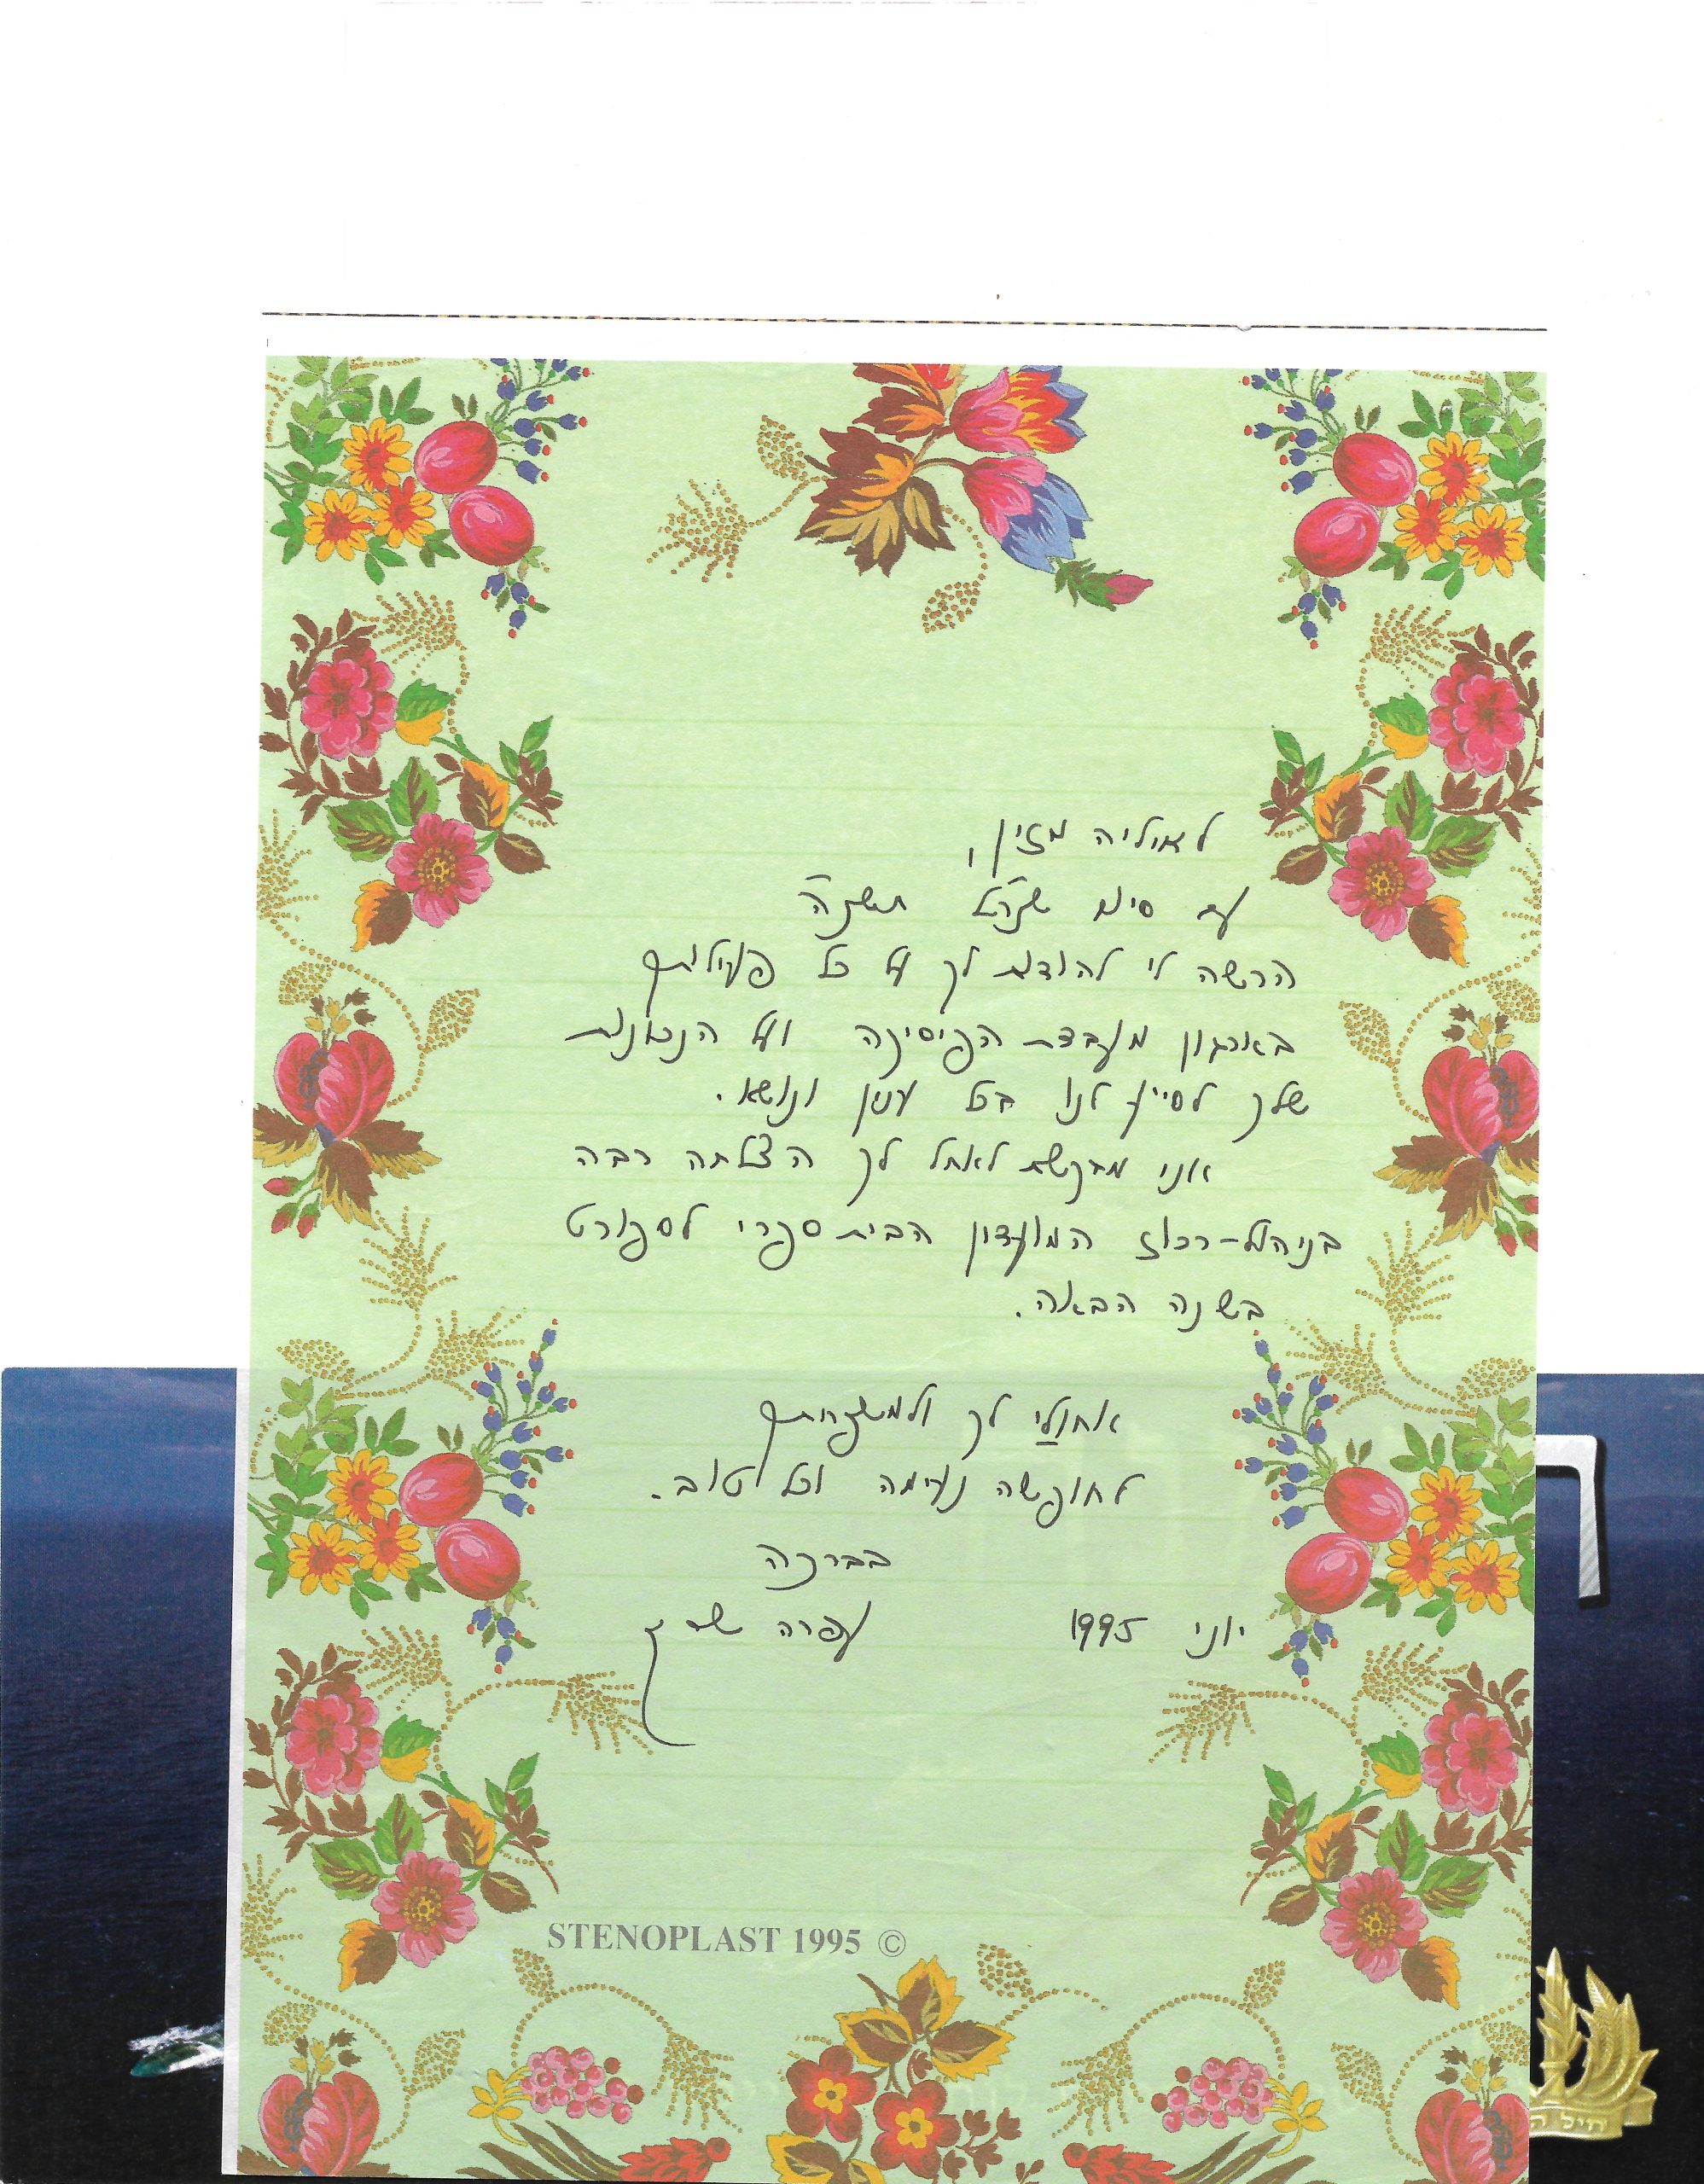 לאוליה מזין,
עם סיום שנה"ל תשנ"ה
הרשה לי להודות לך על כל פעילותך
בארגון מעבדת הפיסיקה ועל הנכונות
שלך לסייע לנו בכל ענין ונושא.
אני מבקשת לאחל לך הצלחה רבה
בניהול-רכוז המועדון הבית ספרי לספורט
בשנה הבאה.
אחולי לך ולמשפחתך
לחופשה נעימה וכל טוב.
בברכה
יוני 1995 עפרה
STENOPLAST 1995 ©
חיל ה